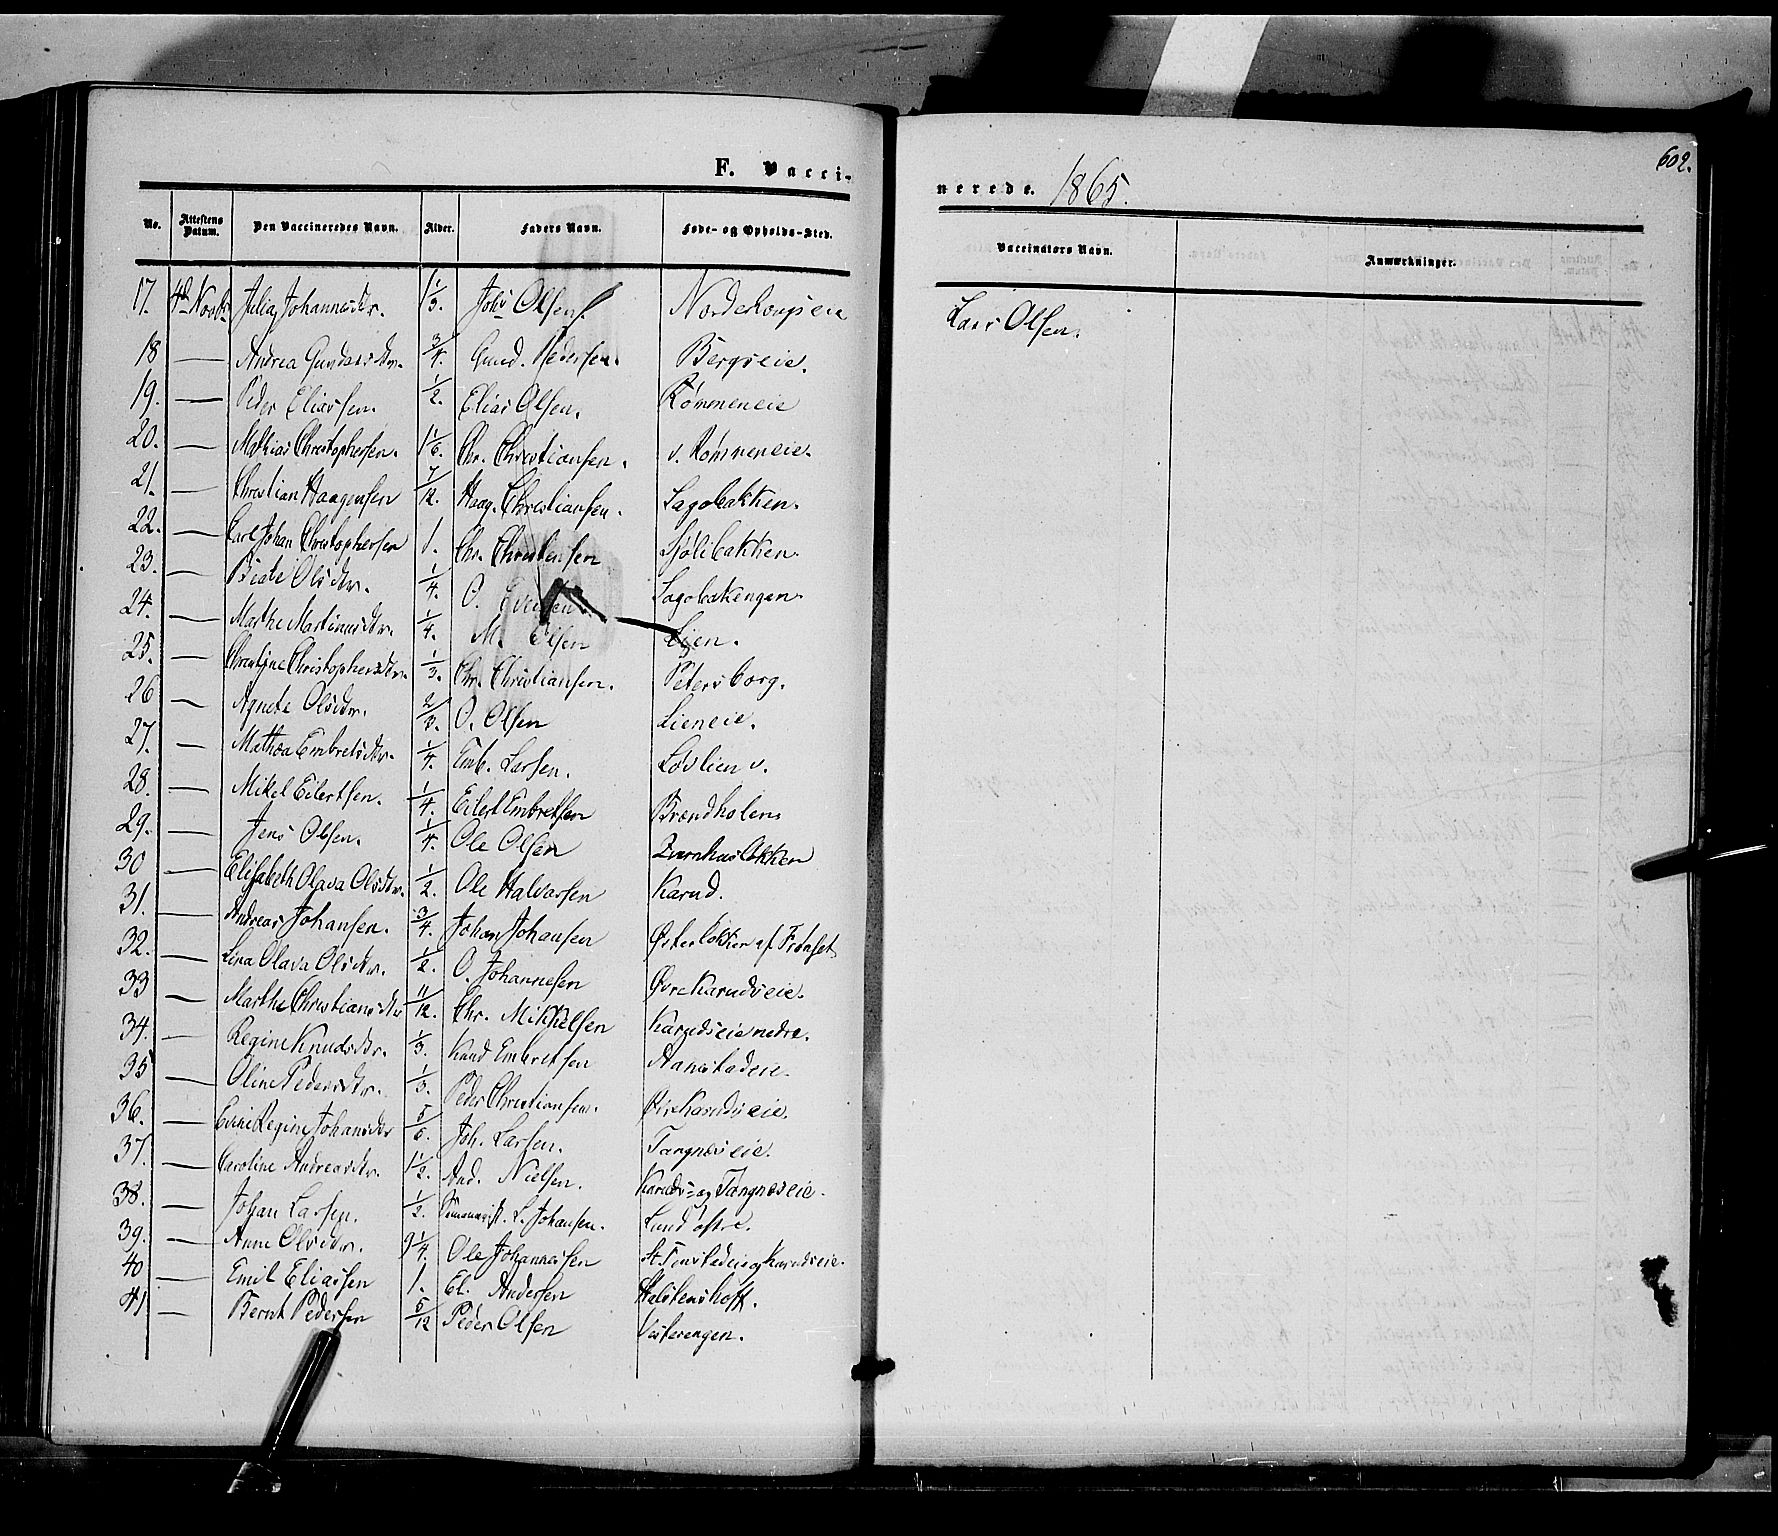 F. Vacci-
nerede. 1865.
602.
No. Attestens Datum. Den Vaccineredes Navn. Alder. Faders Navn. Føde- og Opholds-Sted.
Vaccinators Navn. Anmærkninger.
17. 4de Novbr Julia Johannesdtr. 1 1/3. Johs Olsen. Norderhougseie Lars Olsen.
18 — Andrea Gundersdtr. 3/4. Gund. Pedersen. Bergseie.
19. — Peder Eliassen. 1/2. Elias Olsen. Rømmeneie
20. — Mathias Christophersen. 1 1/6. Chr. Christiansen. v. Rømmeneie.
21. — Christian Haagensen 7/12. Haag. Christiansen. Sagbakken.
22. — Carl Johan Christophersen 1. Chr. Christensen Sjølibakken.
23. — Beate Olsdtr. 1/4. O. Evensen. Sagbakengen.
24. — Marthe Martinusdtr. 1/4. M. Olsen Lien.
25. — Christine Christophersdtr. 1/3. Chr. Christiansen. Petersborg.
26 — Agnete Olsdtr. 2/3. O. Olsen Lieneie.
27. — Mathea Embretsdtr. 1/4. Emb. Larsen. Løvlien v.
28. — Mikel Eilertsen. 1/4. Eilert Embretsen Brændholen
29. — Jens Olsen. 1/4. Ole Olsen Qvernhusløkken
30 — Elisabeth Olava Olsdtr. 1/2. Ole Halvorsen Karud.
31. — Andreas Johansen. 3/4. Johan Johansen Østerløkken af Frønset
32. — Lina Olava Olsdtr. 1/2. O. Johannesen Øvre Karudseie.
33 — Marthe Christiansdtr 11/12. Chr. Mikkelsen Karudseie nedre.
34. — Regine Knudsdtr. 1/3. Knud Embretsen Aanstadeie.
35 — Oline Pedersdtr. 1/3. Peder Christiansen. Øvr Karudseie.
36. — Evine Regine Johansdtr 5/6. Joh. Larsen. Tangnæseie.
37. — Caroline Andreasdtr. 1 1/2. And. Nielsen. Karuds- og Tangnæseie.
38. — Johan Larsen. 1/2. L. Johansen. Lund østre.
39. — Anne Olsdtr. 9 1/4. Ole Johannesen Karudseie.
40 — Emil Eliassen 1. El. Andersen Halstenshoff.
41 — Bernt Pedersen 5/12 Peder Olsen Vesterengen.